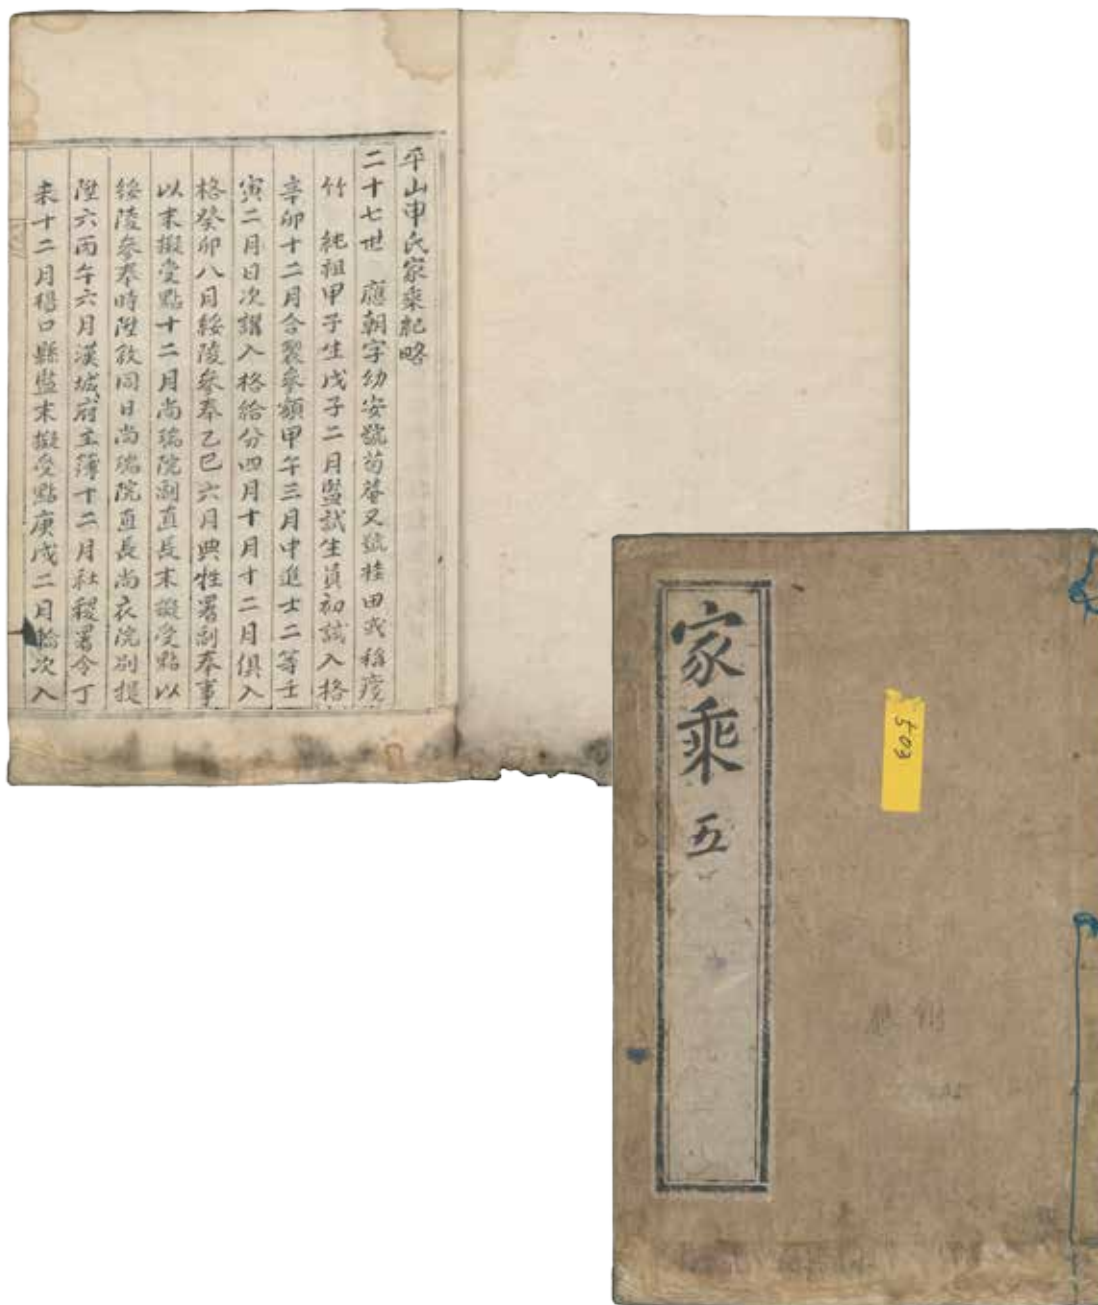 平山申氏家乘紀略
二十七世 應朝字幼安號苟菴又號桂田或稱
竹 純祖甲子生戊子二月監試生員初試入格
辛卯十二月合製參額甲午三月中進士二等壬
寅二月日次講入格給分四月十月十二月俱入
格癸卯八月綏陵參奉乙巳六月典牲署副奉事
以末擬受點十二月尚瑞院副直長末擬受點以
綏陵參奉時陞敘同日尚瑞院直長尚衣院別提
陞六丙午六月漢城府主簿十二月社稷署令丁
未十二月楊口縣監末擬受點庚戌二月輪次入
家乘 五
503